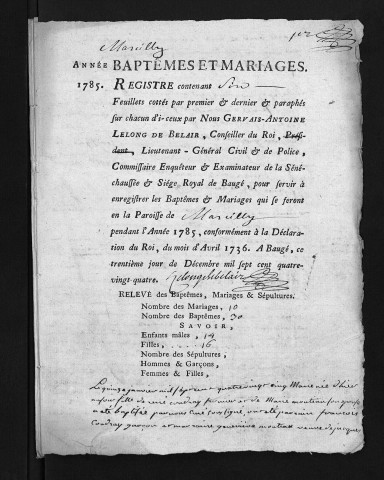 Marcilly
1er
ANNÉE BAPTÊMES ET MARIAGES.
1785. REGISTRE contenant Six
Feuillets cottés par premier & dernier & paraphés
sur chacun d'i-ceux par Nous GERVAIS-ANTOINE
LELONG DE BELAIR, Conseiller du Roi, Président,
Lieutenant-Général Civil & de Police,
Commissaire Enquêteur & Examinateur de la Sénéchaussée
& Siége Royal de Baugé, pour servir à
enregistrer les Baptêmes & Mariages qui se feront
en la Paroisse de Marcilly
pendant l'Année 1785, conformément à la Déclaration
du Roi, du mois d'Avril 1736. A Baugé, ce
trentième jour de Décembre mil sept cent quatre-
vingt-quatre. Lelong de belair
RELEVÉ des Baptêmes, Mariages & Sépultures.
Nombre des Mariages, 10
Nombre des Baptêmes, 30
SAVOIR,
Enfants mâles, 14
Filles, ..... 16
Nombre des Sépultures,
Hommes & Garçons,
Femmes & Filles,
janvier mil sept cent quatre vingt cinq Marie née d'hier
fille de rené et de Marie
a été baptisée par nous curé soussigné ont été parrain francois
garçon et marraine genevieve veuve de jacques